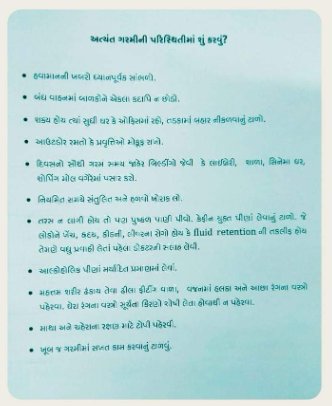 અત્યંત ગરમીની પરિસ્થિતીમાં શું કરવું?
• હવામાનની ખબરો ધ્યાનપૂર્વક સાંભળો.
• બંધ વાહનમાં બાળકોને એકલા કદાપિ ન છોડો.
• શક્ય હોય ત્યાં સુધી ઘર કે ઓફિસમાં રહો, તડકામાં બહાર નીકળવાનું ટાળો.
• આઉટડોર રમતો કે પ્રવૃત્તિઓ મોકૂફ રાખો.
• દિવસનો સૌથી ગરમ સમય જાહેર બિલ્ડીંગો જેવી કે લાઈબ્રેરી, શાળા, સિનેમા ઘર,
શોપિંગ મોલ વગેરેમાં પસાર કરો.
• નિયમિત સમયે સંતુલિત અને હળવો ખોરાક લો.
• તરસ ન લાગી હોય તો પણ પુષ્કળ પાણી પીવો. કેફીન યુક્ત પીણાં લેવાનું ટાળો. જે
લોકોને ખેંચ, હૃદય, કીડની, લીવરના રોગો હોય કે fluid retention ની તકલીફ હોય
તેમણે વધુ પ્રવાહી લેતાં પહેલા ડોક્ટરની સલાહ લેવી.
• આલ્કોહોલિક પીણાં મર્યાદિત પ્રમાણમાં લેવાં.
• મહત્તમ શરીર ઢંકાય તેવા ઢીલા ફીટીંગ વાળા, વજનમાં હલકા અને આછા રંગના વસ્ત્રો
પહેરવા. ઘેરા રંગના વસ્ત્રો સૂર્યના કિરણો શોષી લેતા હોવાથી ન પહેરવા.
• માથા અને ચહેરાના રક્ષણ માટે ટોપી પહેરવી.
• ખૂબ જ ગરમીમાં સખત કામ કરવાનું ટાળવું.